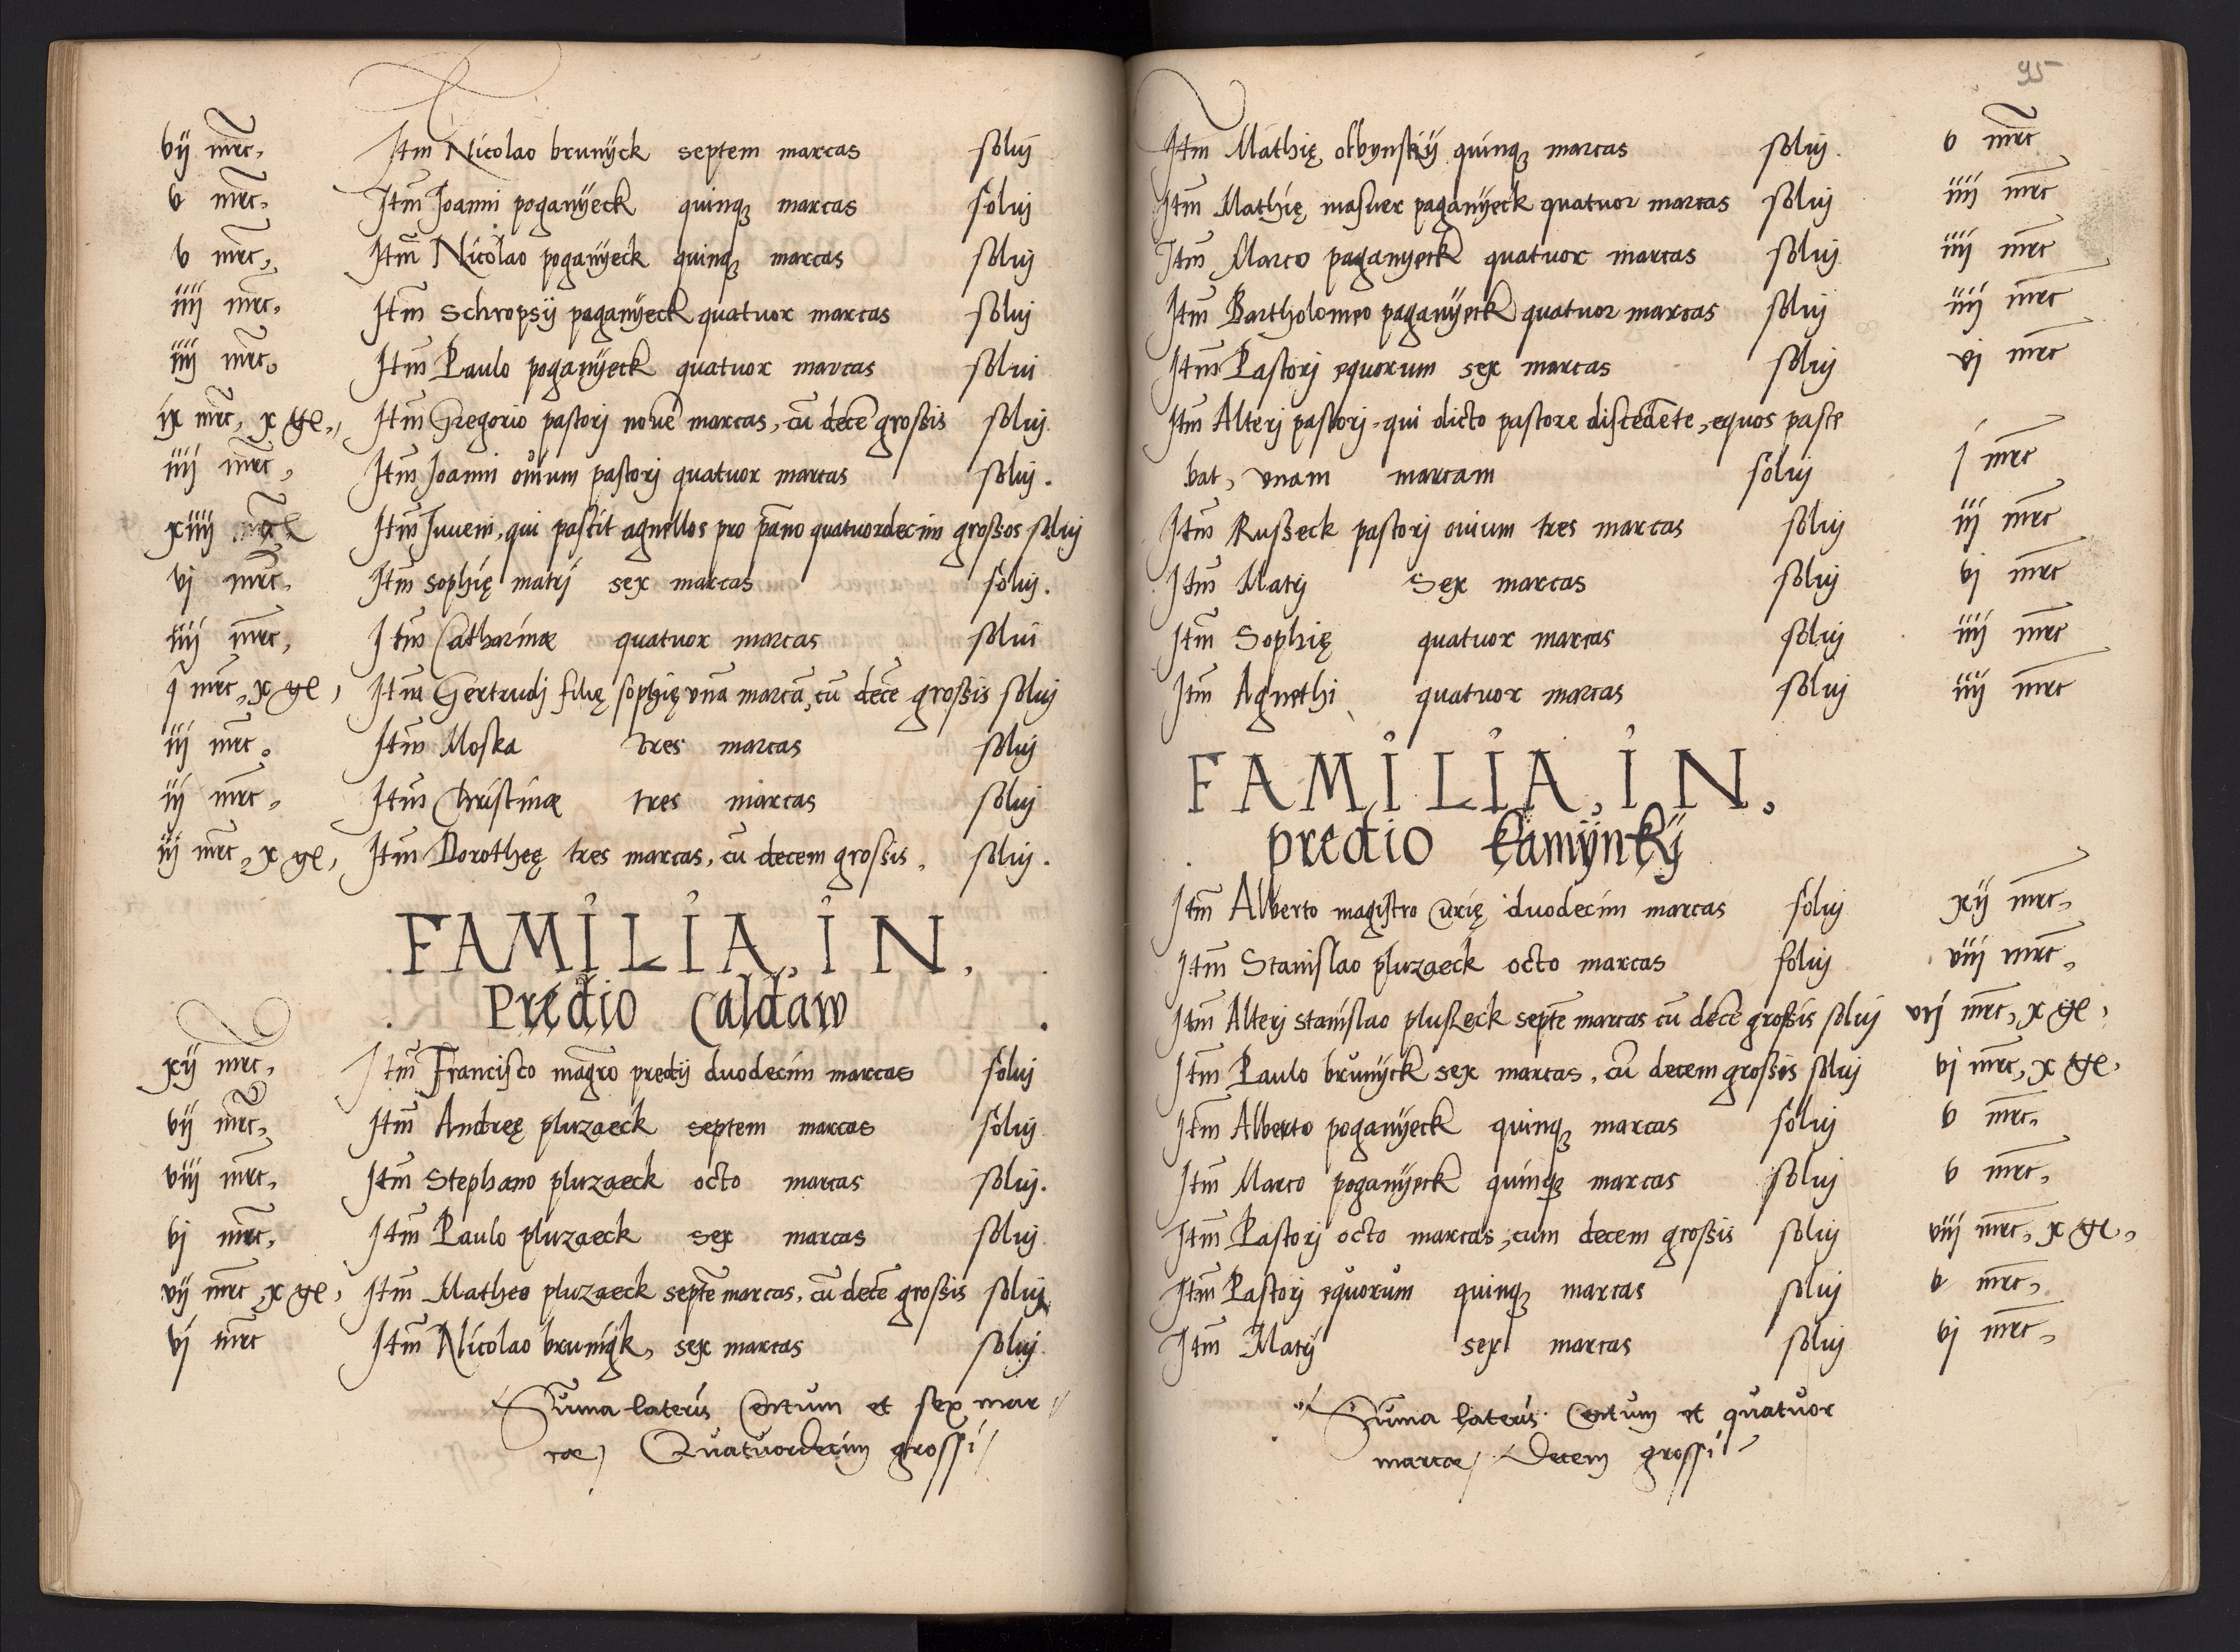 vij mrc, Itm Nicolao brunyck septem marcas soluj
v mrc, Itm Joanni poganyeck quinqz marcas soluj
v mrc, Itm Nicolao poganyeck quinqz marcas soluj
iiij mrc, Itm Schropsij paganyeck quatuor marcas soluj
iiij mrc. Itm Paulo poganyeck quatuor marcas solui
ix mrc, x gl, Itm Gregorio pastorj nove marcas, cu dece grossis soluj
iiij mrc, Itm Joanni ouium pastorj quatuor marcas soluj.
xiiij Itm Juveni, qui pastit agnellos pro pano quatuordecim grossos soluj
vj mrc, Itm sophię matrj sex marcas soluj.
iiij mrc, Itm Catharinæ quatuor marcas solui
j mrc, x gl, Itm Gertrudj filię sophię una marca, cu dece grossis soluj
iij mrc. Itm Moska tres marcas soluj
iij mrc, Itm Christinæ tres marcas soluj
iij mrc, x gl, Itm Dorotheę tres marcas, cu decem grossis, soluj.
FAMILIA, IN,
Prędio Caldaw
xij mrc, Itm Francisco magro prędij duodecim marcas soluj
vij mrc, Itm Andreę pluzaeck septem marcas soluj
viij mrc, Itm Stephano pluzaeck octo marcas soluj.
vj mrc, Itm Paulo pluzaeck sex marcas soluj
vij mrc x gl, Itm Matheo pluzaeck septe marcas, cu dece grossis soluj
vj mrc Itm Nicolao brunigk, sex marcas soluj
Suma lateris Centum et sex mar
cæ / Quatuordecim grossi /
95
Itm Mathię quinqz marcas soluj. v mrc
Itm Mathię masuer paganyeck quatuor marcas soluj iiij mrc
Itm Marco paganyeck quatuor marcas soluj iiij mrc
Itm Bartholomeo paganyeck quatuor marcas soluj iiij mrc
Itm Pastorj equorum sex marcas soluj vj mrc
Itm Alterj pastorj, qui dicto pastore discedete, equos paste
bat, unam marcam soluj j mrc
Itm Russeck pastorj ouium tres marcas soluj iij mrc
Itm Matrj Sex marcas soluj vj mrc
Itm Sophię quatuor marcas soluj iiij mrc
Itm Agnethi quatuor marcas soluj iiij mrc
FAMILIA, IN,
prędio Kamynkij
Itm Alberto magistro Curię duodecim marcas soluj xij mrc,
Itm Stanislao pluzaeck octo marcas soluj viij mrc,
Itm Alterj stanislao pluszeck septe marcas cu dece grossis soluj vij mrc, x gl,
Itm Paulo brunyck sex marcas, cu decem grossis soluj vj mrc, x gl,
Itm Alberto poganyeck quinqz marcas soluj v mrc,
Itm Marco poganyeck quinqz marcas soluj v mrc,
Itm Pastorj octo marcas, cum decem grossis soluj viij mrc, x gl,
Itm Pastorj equorum quinqz marcas soluj v mrc,
Itm Matrj sex marcas soluj vj mrc,
Suma lateris Centum et quatuor
marcæ / Decem grossi